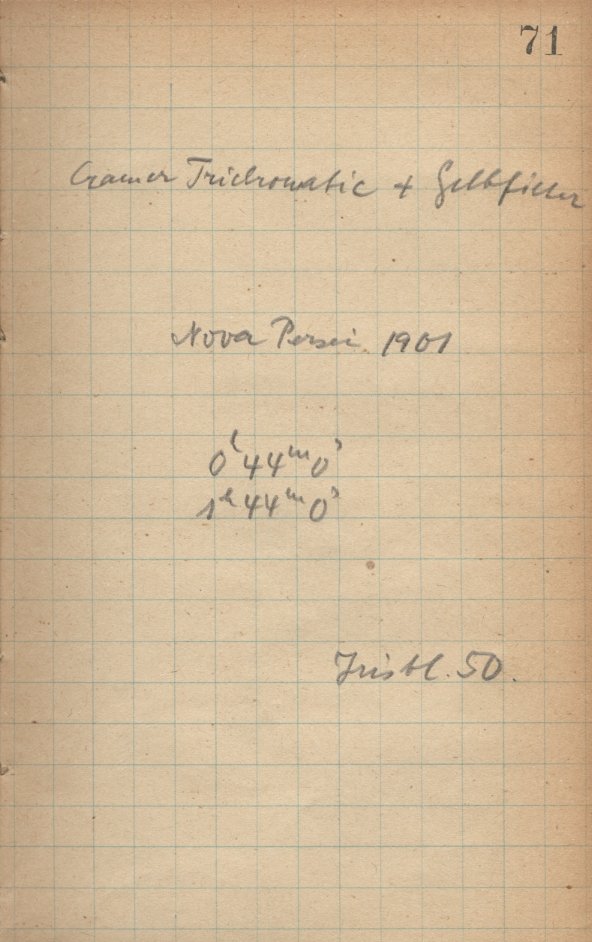 71
Cramer Trichromatic + Gelbfilter
Nova Persei 1901
0h 44m 0s
1h 44m 0s
Irisbl. 50.